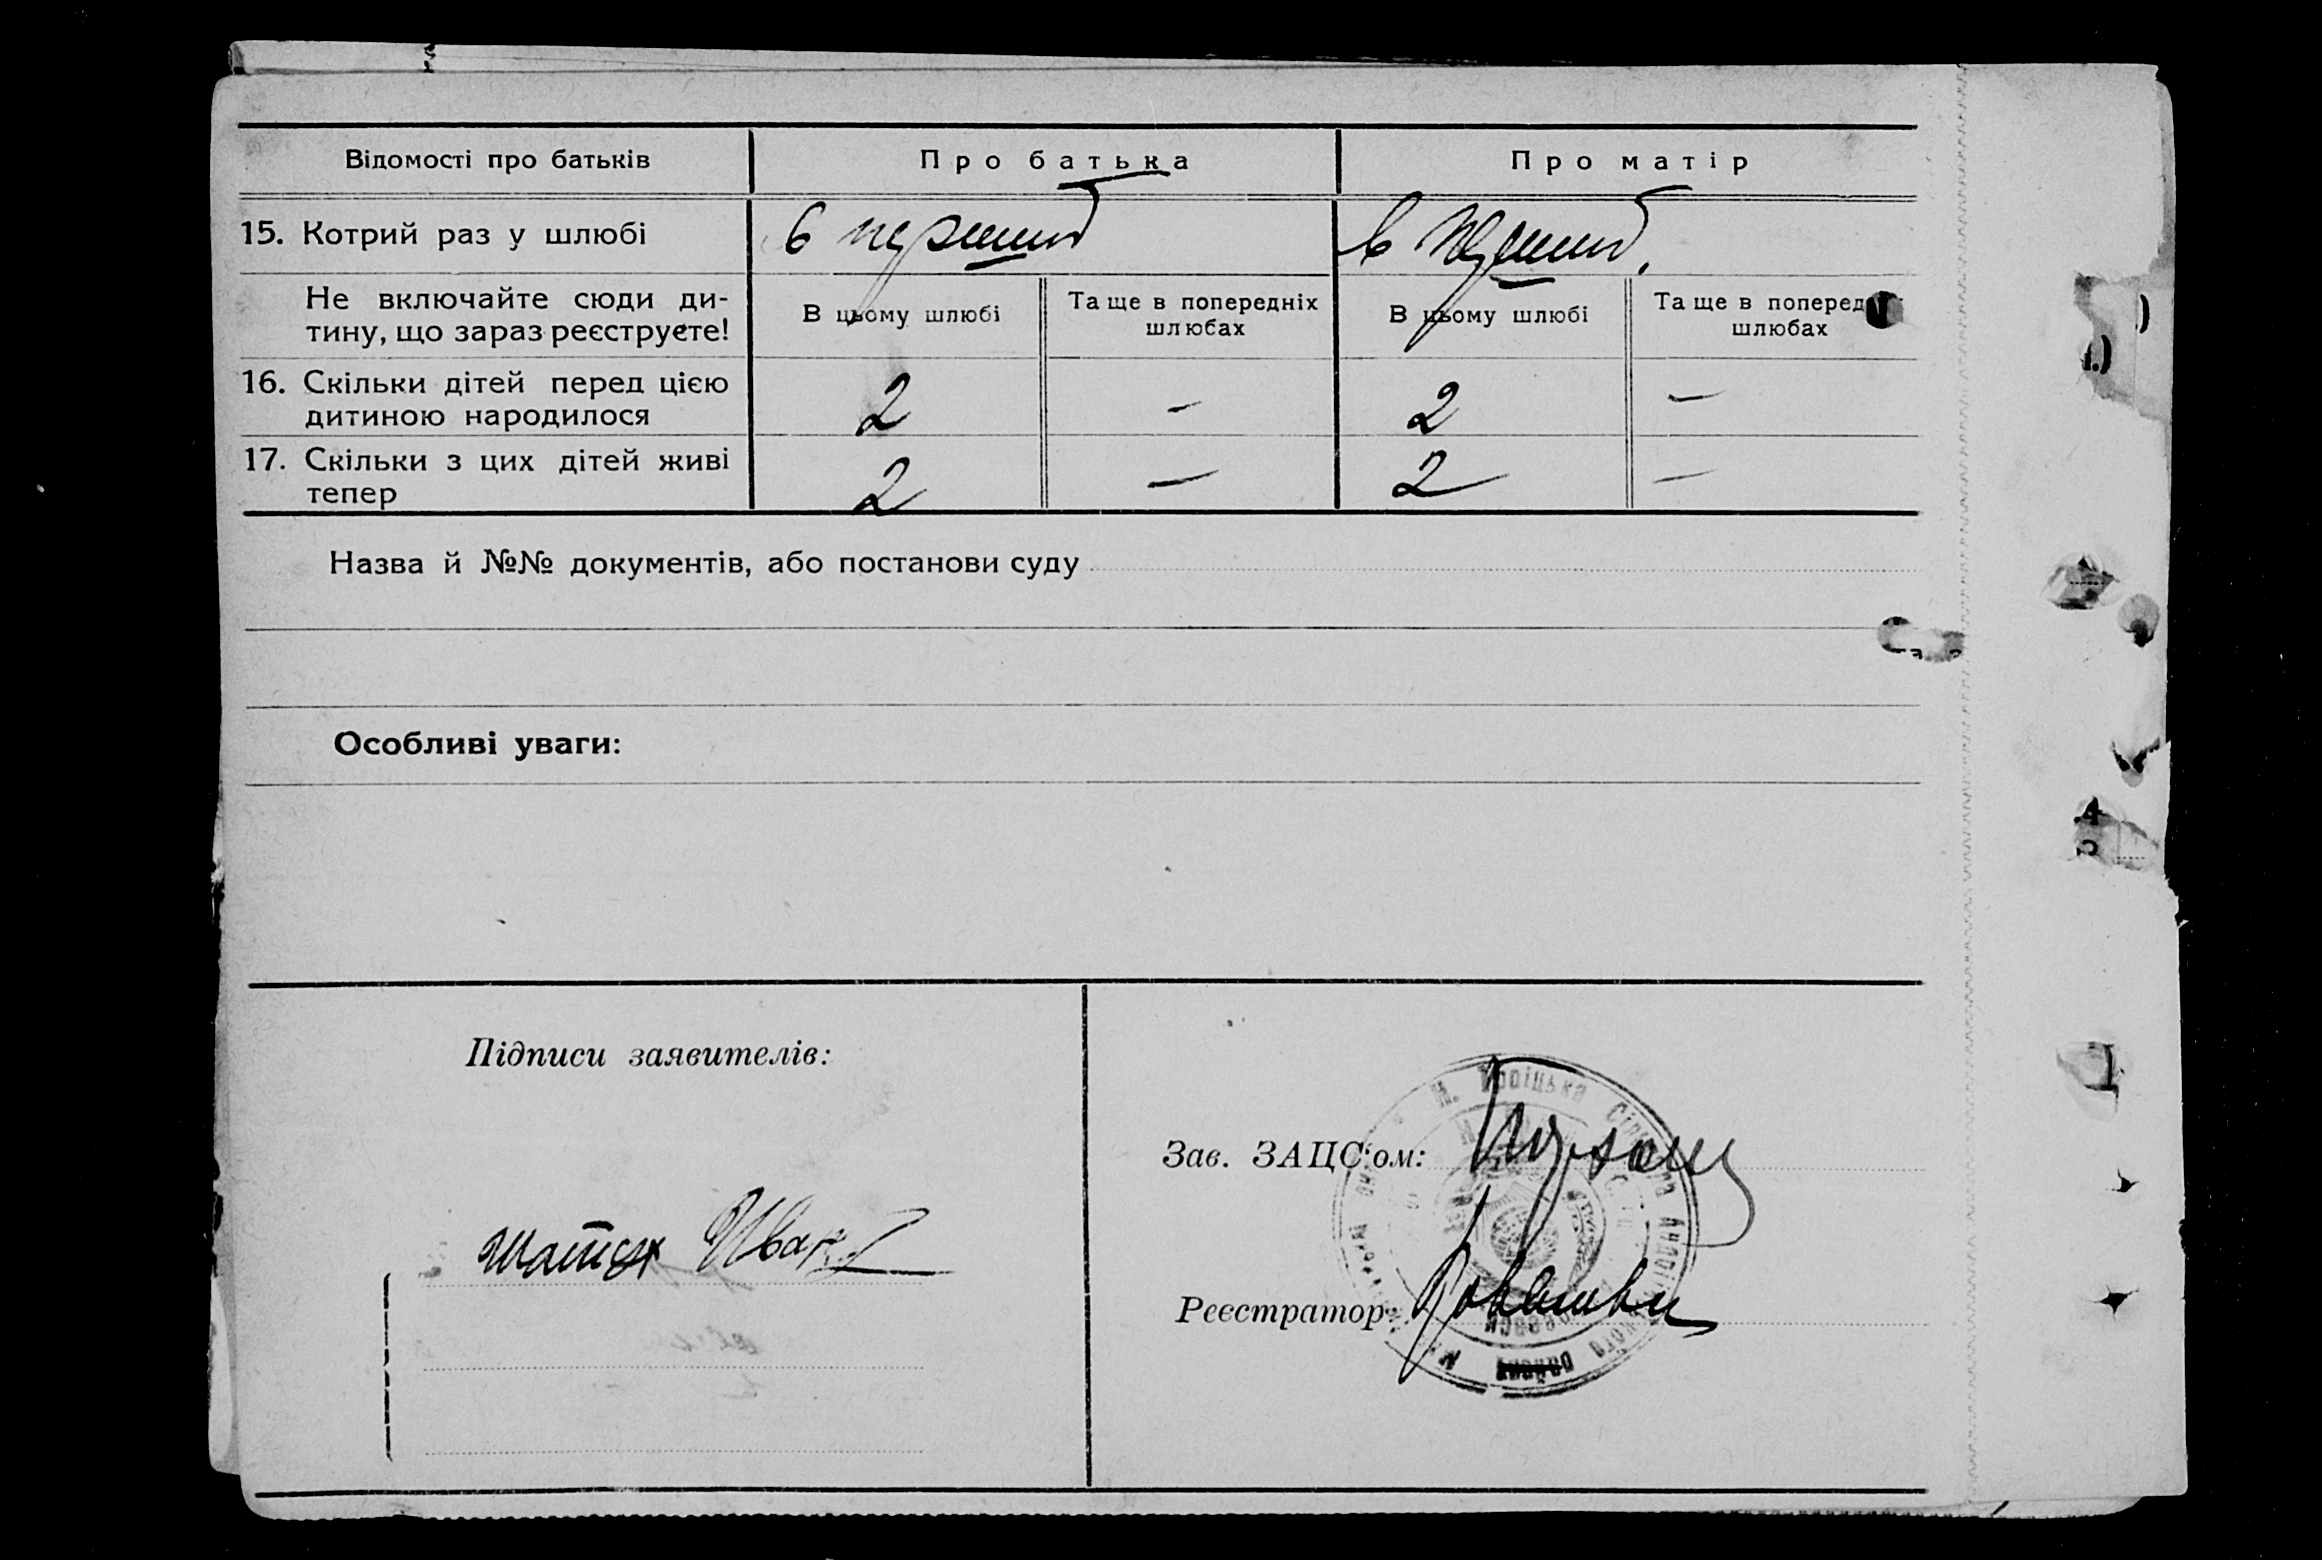 Відомості про батьків
Про батька
Про матір
15. Котрий раз у шлюбі
в перший
в перший
Не включайте сюди ди-
тину, що зараз реєструєте!
В цьому шлюбі
Та ще в попередніх
шлюбах
В цьому шлюбі
Та ще в поперед
шлюбах
16. Скільки дітей перед цією
дитиною народилося
2
-
2
-
17. Скільки з цих дітей живі
тепер
2
-
2
-
Назва й №№ документів, або постанови суду
Особливі уваги:
Підписи заявителів:
Иван
Зав. ЗАЦС'ом:
Реєстратор:
Троіцька